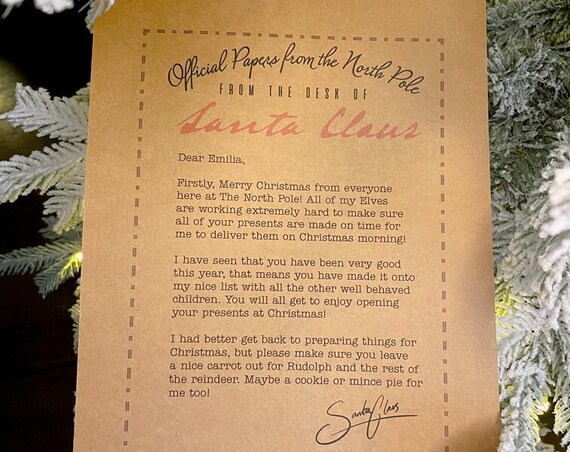 Official Papers from the North Pole
FROM THE DESK OF
Santa Claus
Dear Emilia,
Firstly, Merry Christmas from everyone
here at The North Pole! All of my Elves
are working extremely hard to make sure
all of your presents are made on time for
me to deliver them on Christmas morning!
I have seen that you have been very good
this year, that means you have made it onto
my nice list with all the other well behaved
children. You will all get to enjoy opening
your presents at Christmas!
I had better get back to preparing things for
Christmas, but please make sure you leave
a nice carrot out for Rudolph and the rest of
the reindeer. Maybe a cookie or mince pie for
me too!
Santa Claus